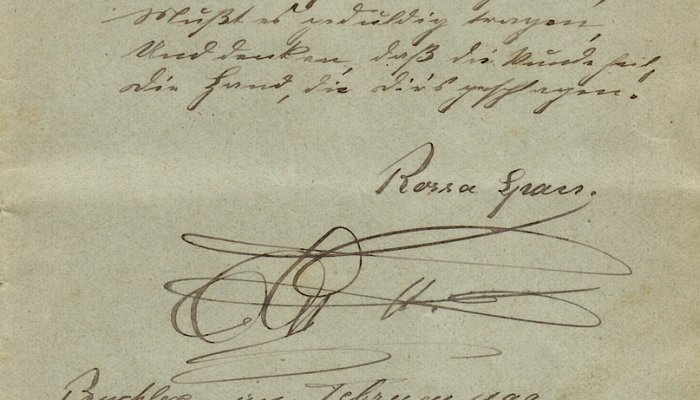 Mußt es geduldig tragen,
Und denken, daß die Wunde heil,
Die Hand, die dir's geschlagen!
Rosa
im Februar